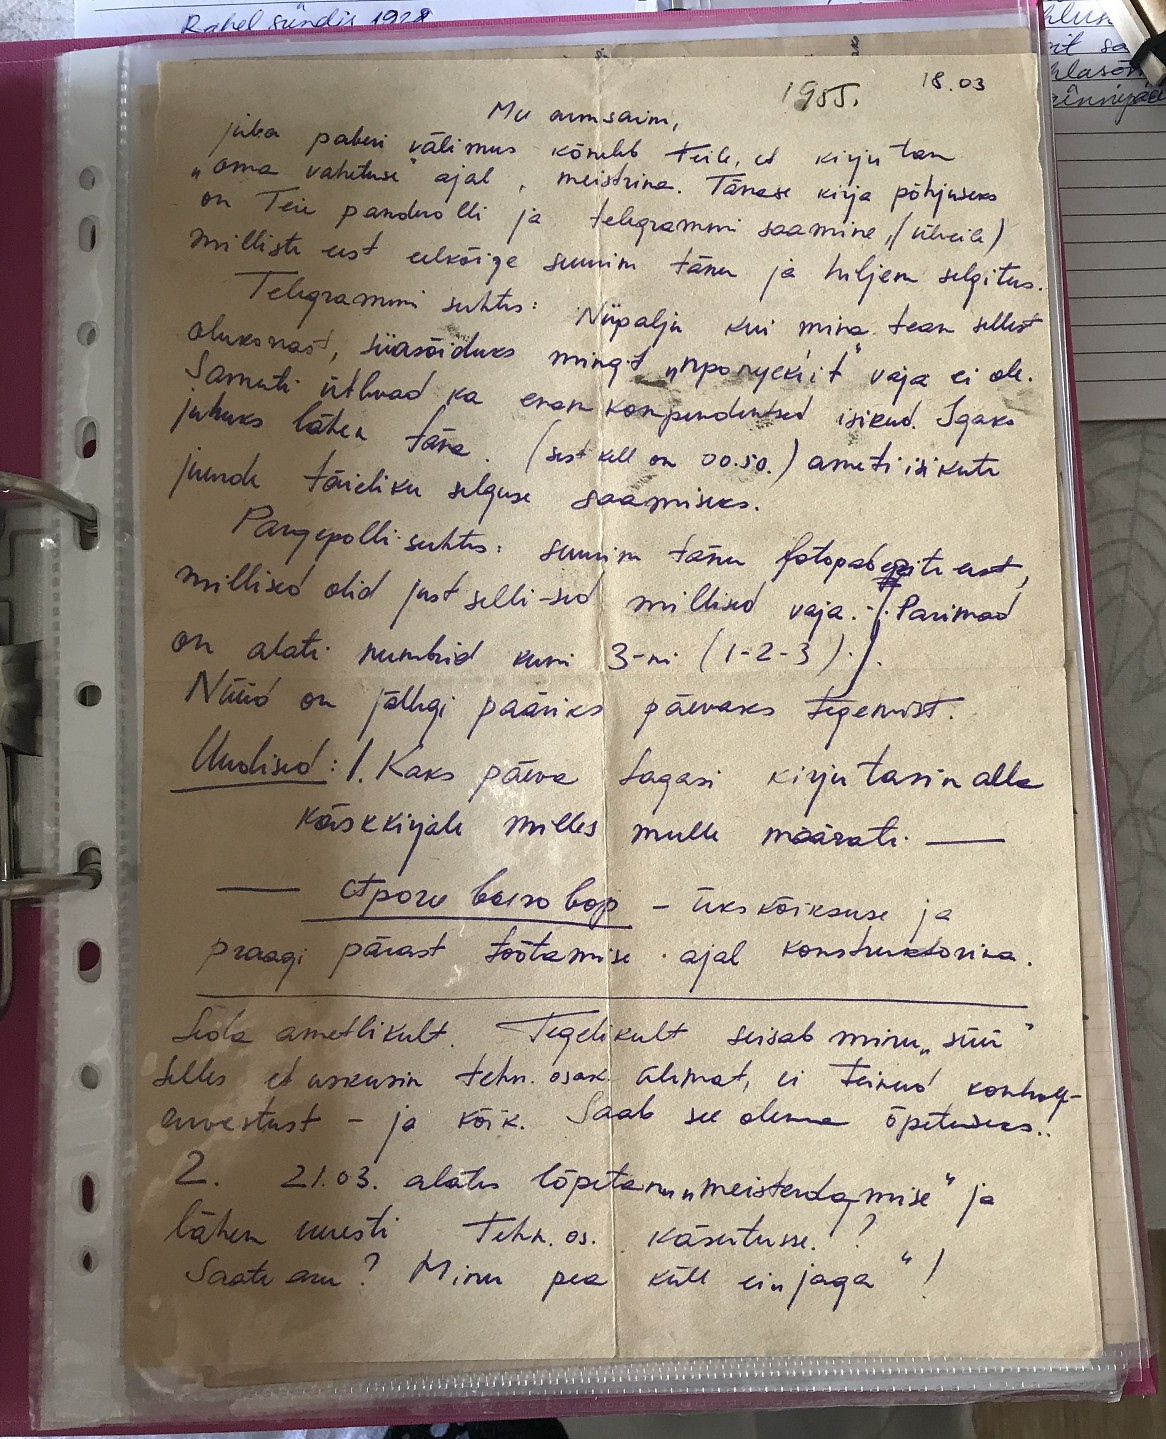 Rahel sündis 1928
18.03
1955.
Mu armsaim,
juba paberi välimus kõneleb Teile, et kirjutan
„oma vahetuse" ajal, meistrina. Tänase kirja põhjuseks
on Teie panderolli ja telegrammi saamine, (üheile)
milliste eest eelkõige suurim tänu ja hiljem selgitus.
Telegrammi suhtes: Niipalju kui mina tean sellest
olukorrast, siiasõiduks mingit „пропуск'it" vaja ei ole.
Samuti ütlevad ka enam kompendentsed isikud. Igaks
juhuks lähen täna. (sest kell on 00.50.) ametiisikute
juurde täieliku selguse saamiseks.
Pangepolli suhtes: suurim tänu fotopaberite eest,
millised olid just selli-sed millised vaja. -/. Parimad
on alati numbrid kuni 3-ni (1-2-3)./.
Nüüd on jällegi pääriks päevaks tegemist.
Uudised: 1. Kaks päeva tagasi kirjutasin alla
käskkirjale milles mulle määrati —
— строги выговор — ükskõiksuse ja
praagi pärast töötamise ajal konstruktorina.
Seda ametlikult. Tegelikult seisab minu „süü"
selles et uskusin tehn. osak. ülemat, ei teinud kontroll-
arvestust – ja kõik. Saab see olema õpetuseks..
2. 21.03. alates lõpetan „meisterdamise" ja
lähen uuesti Tehn. os. käsutusse. ?
Saate aru? Minu pea küll ei „jaga"!